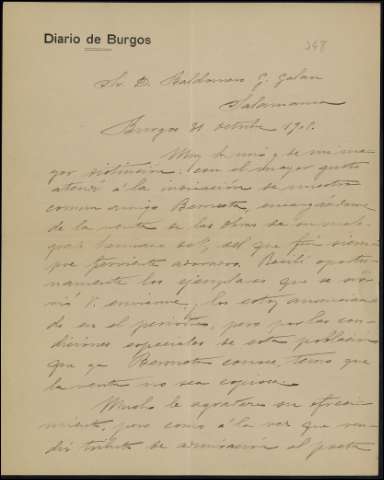 Diario de Burgos
348
Sr. D. Baldomero G. Galan
Salamanca
Burgos 31 octubre 1908.
Muy Sr. mio y de mi ma-
yor distinción: con el mayor gusto
atendí á la indicación de nuestro
comun amigo Berrueta, encargándome
de la venta de las obras de su malo-
grado hermano de V., del que fuí siem-
pre ferviente admirador. Recibí oportu-
namente los ejemplares que se sir-
vió V. enviarme, y los estoy anuncian-
do en el periódico, pero por las con-
diciones especiales de esta población
que ya Berrueta conoce, temo que
la venta no sea copiosa.
Mucho le agradezco su ofreci-
miento, pero como á la vez que ren-
dir tributo de admiración al poeta